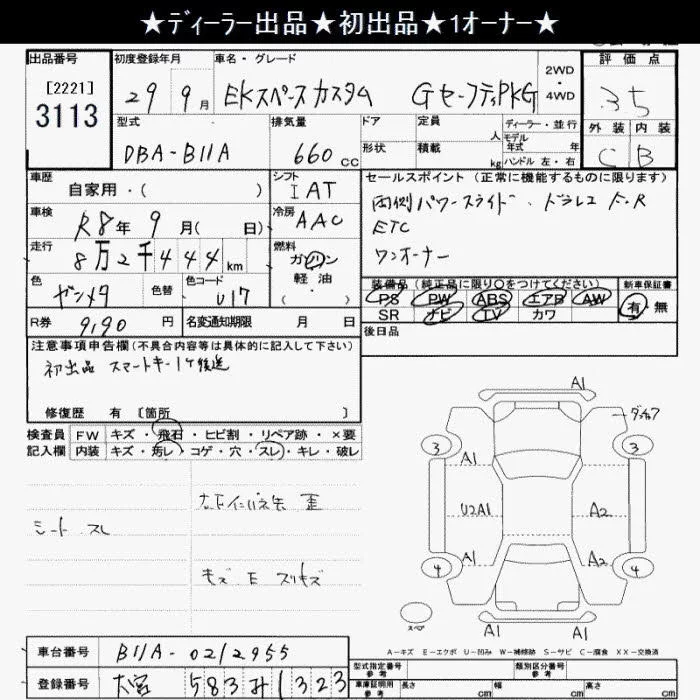 ★ディーラー出品★初出品★1オーナー★
出品番号 初度登録年月 車名・グレード 2WD・4WD 評価点
[2221]
3113
29 9月 EKスペースカスタム GセーフティPKG 3.5
型式 排気量 ドア 定員 人 ディーラー・並行 外装 内装
DBA-B11A 660cc 形状 積載 kg モデル年式 年式 ハンドル 左・右 C B
車歴 シフト セールスポイント(正常に機能するものに限ります)
自家用・( ) IAT 両側パワースライド、ドラレコ F・R
車検 冷房 ETC
R8年 9月( 日) AAC ワンオーナー
走行 燃料
8万2千444km ガソリン・軽油・( )
装備品(純正品に限り〇をつけてください) 新車保証書
色 色替 色コード PS PW ABS エアB AW 有 無
ガンメタ U17 SR ナビ TV カワ
R券 9,190円 名変通知期限 月 日 後日品
注意事項申告欄(不具合内容等は具体的に記入して下さい)
初出品 スマートキー1ケ後送
修復歴 有 [箇所 ]
検査員 FW キズ・飛石・ヒビ割・リペア跡・×要
記入欄 内装 キズ・汚レ・コゲ・穴・スレ・キレ・破レ
シート スレ
キズ E スリキズ
A1
3 3
A1
U2A1 A2
A1 A2
4 4
スペア A1 A1
A-キズ E-エクボ U-凹み W-補修跡 S-サビ C-腐食 XX-交換済
車台番号 B11A-0212955
型式指定番号 参考 類別区分番号 参考
登録番号 大宮 583み1323
車庫証明用 参考 長さ cm 幅 cm 高さ cm